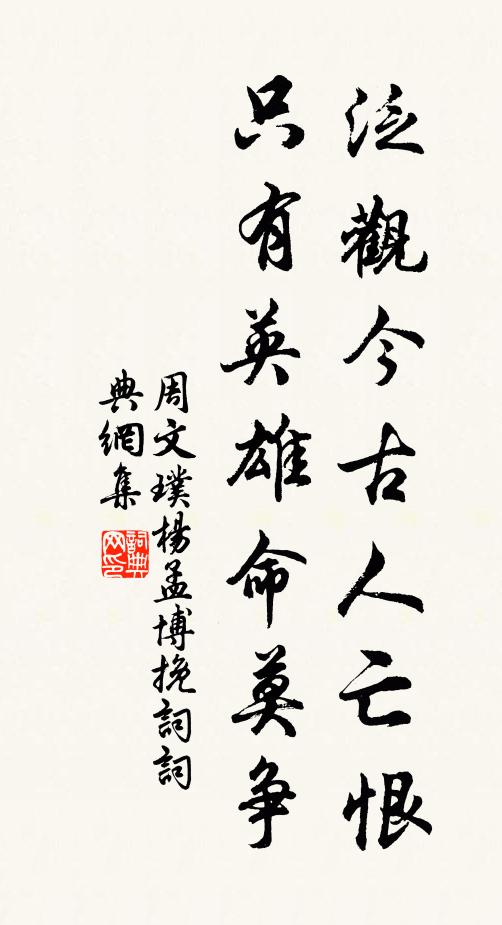 泛觀今古人亡恨
只有英雄命莫爭
周文璞楊孟博挽詞詞
典網集
詞典网印